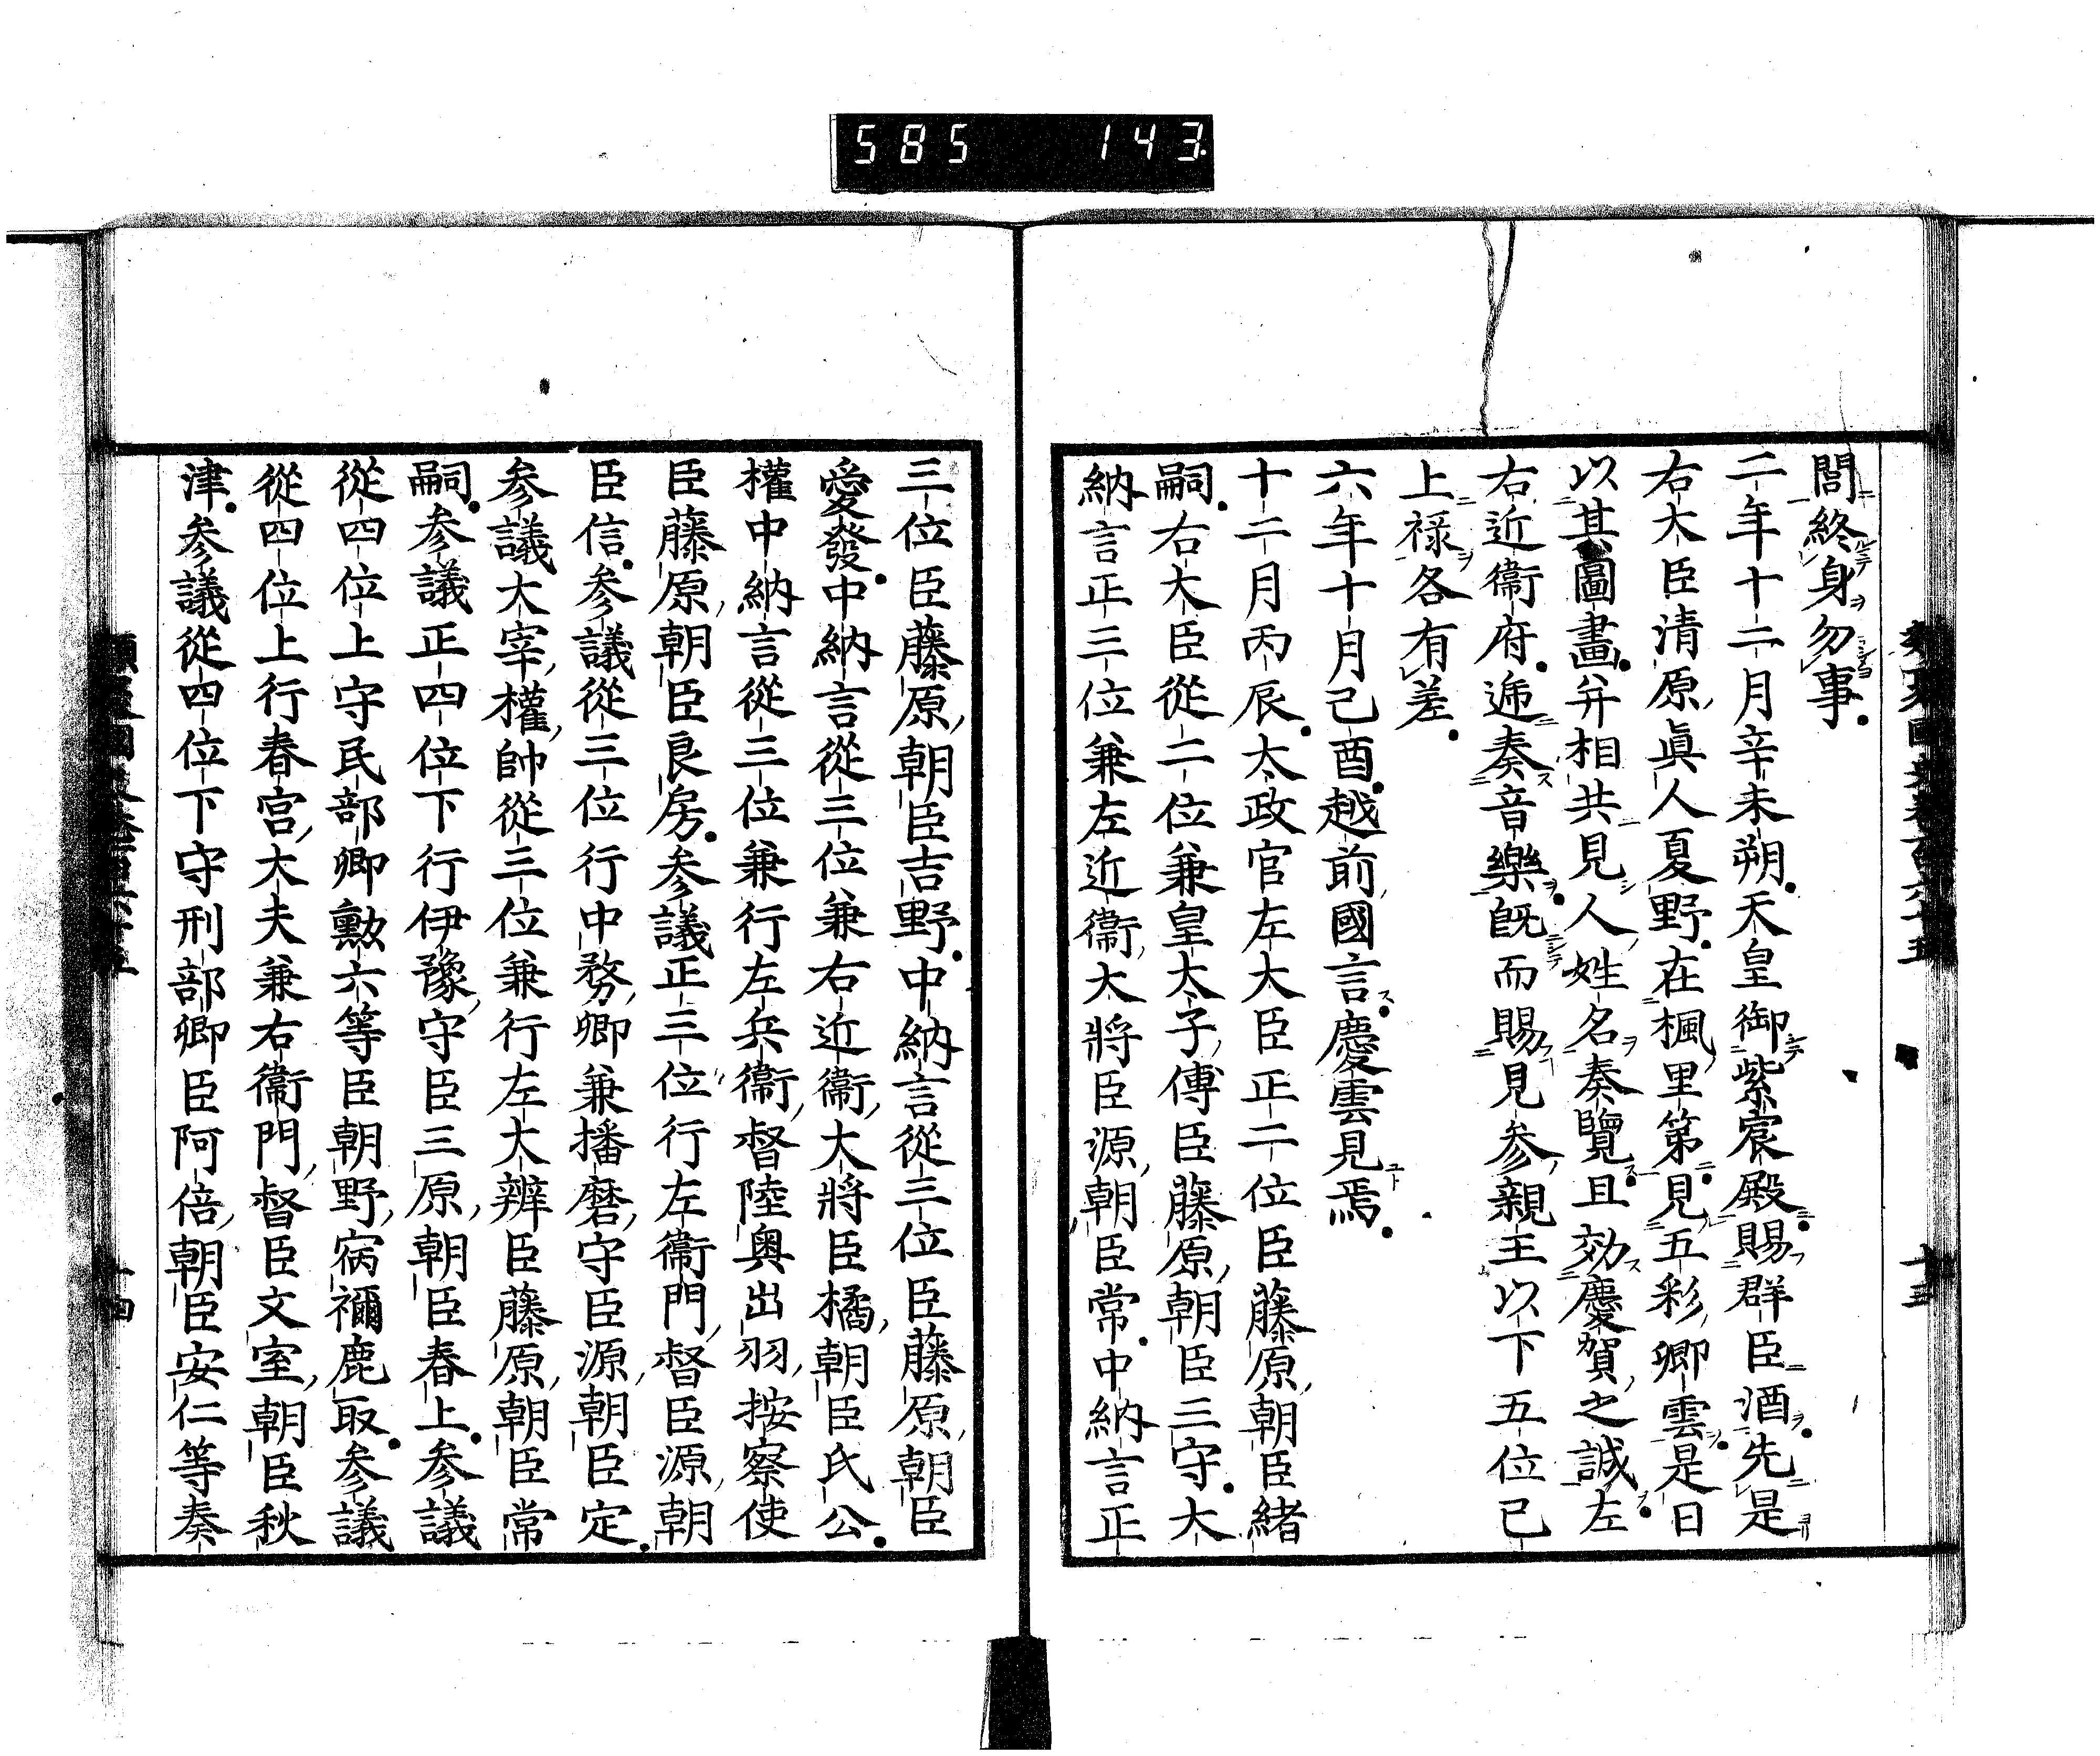 585 143
閭終身勿事
二年十二月辛未朔天皇御紫宸殿賜群臣酒先是
右大臣清原眞人夏野在楓里第見五彩卿雲是日
以其圖畫并相共見人姓名奏覽且効慶賀之誠左
右近衞府遞奏音樂旣而賜見參親王以下五位已
上禄各有差
六年十月己酉越前國言慶雲見焉
十二月丙辰太政官左大臣正二位臣藤原朝臣緒
嗣右大臣從二位兼皇太子傅臣藤原朝臣三守大
納言正三位兼左近衞大將臣源朝臣常中納言正
三位臣藤原朝臣吉野中納言從三位臣藤原朝臣
愛發中納言從三位兼右近衞大將臣橘朝臣氏公
權中納言從三位兼行左兵衞督陸奧出羽按察使
臣藤原朝臣良房參議正三位行左衞門督臣源朝
臣信參議從三位行中務卿兼播磨守臣源朝臣定
參議大宰權帥從三位兼行左大辨臣藤原朝臣常
嗣參議正四位下行伊豫守臣三原朝臣春上參議
從四位上守民部卿勲六等臣朝野宿禰鹿取參議
從四位上行春宮大夫兼右衞門督臣文室朝臣秋
津參議從四位下守刑部卿臣阿倍朝臣安仁等奏